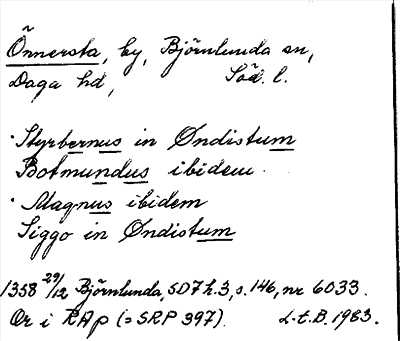 Önnersta, by, Björnlunda sn,
Daga hd, Söd. l.
Styrbernus in Øndistum
Botmundus ibidem
Magnus ibidem
Siggo in Øndistum
1358 29/12 Björnlunda, SD7 h.3, s. 146, nr 6033.
Or i RAp (= SRP 397). L.t.B. 1983.